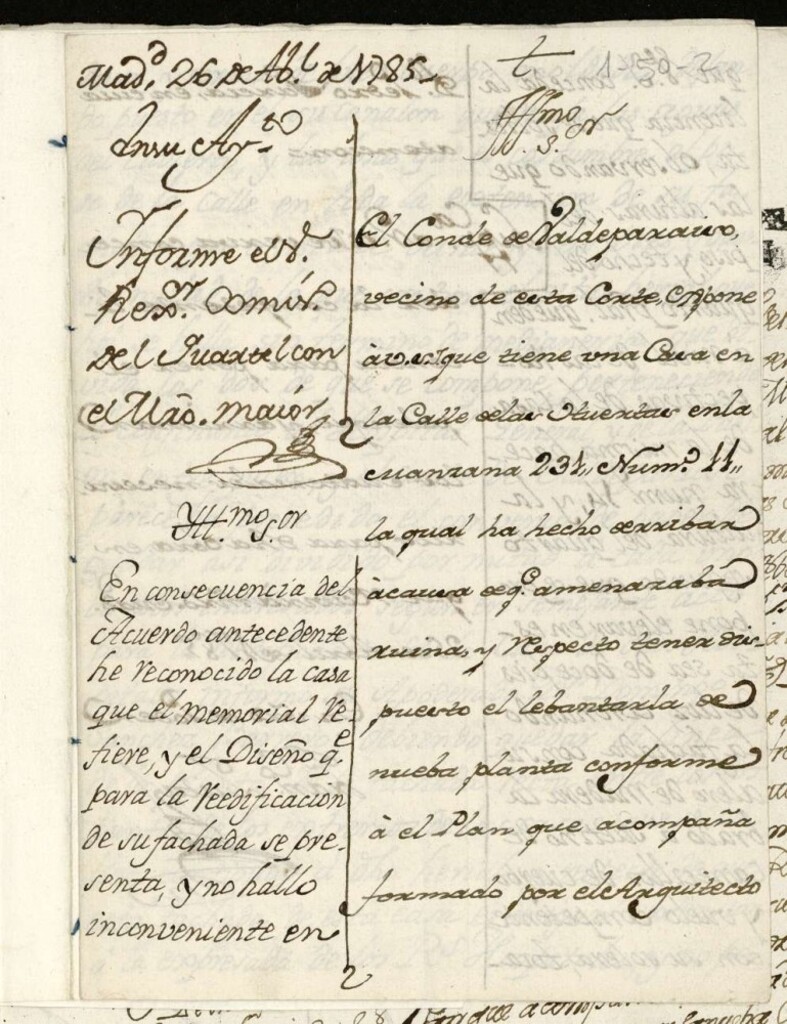 Mad.d 26 de Ab.l de 1785
En su Ay.to
Informe el S.r
Rex.or Comis.o
del Quartel con
el Mro. maior
Yll.mo S.or
En consecuencia del
Acuerdo antecedente
he reconocido la casa
que el Memorial re-
fiere, y el Diseño q.e
para la reedificacion
de su fachada se pre-
senta, y no hallo
inconveniente en
1-50-2
Yll.mo S.or
El Conde de Valdeparaiso,
vecino de esta Corte, expone
à V.S.I. que tiene vna Casa en
la Calle delas Huertas en la
manzana 234,, Num.o 11,,
la qual ha hecho derribar
à causa de q.e amenazaba
ruina, y respecto tener dis-
puesto el lebantarla de
nueba planta conforme
à el Plan que acompaña
formado por el Arquitecto